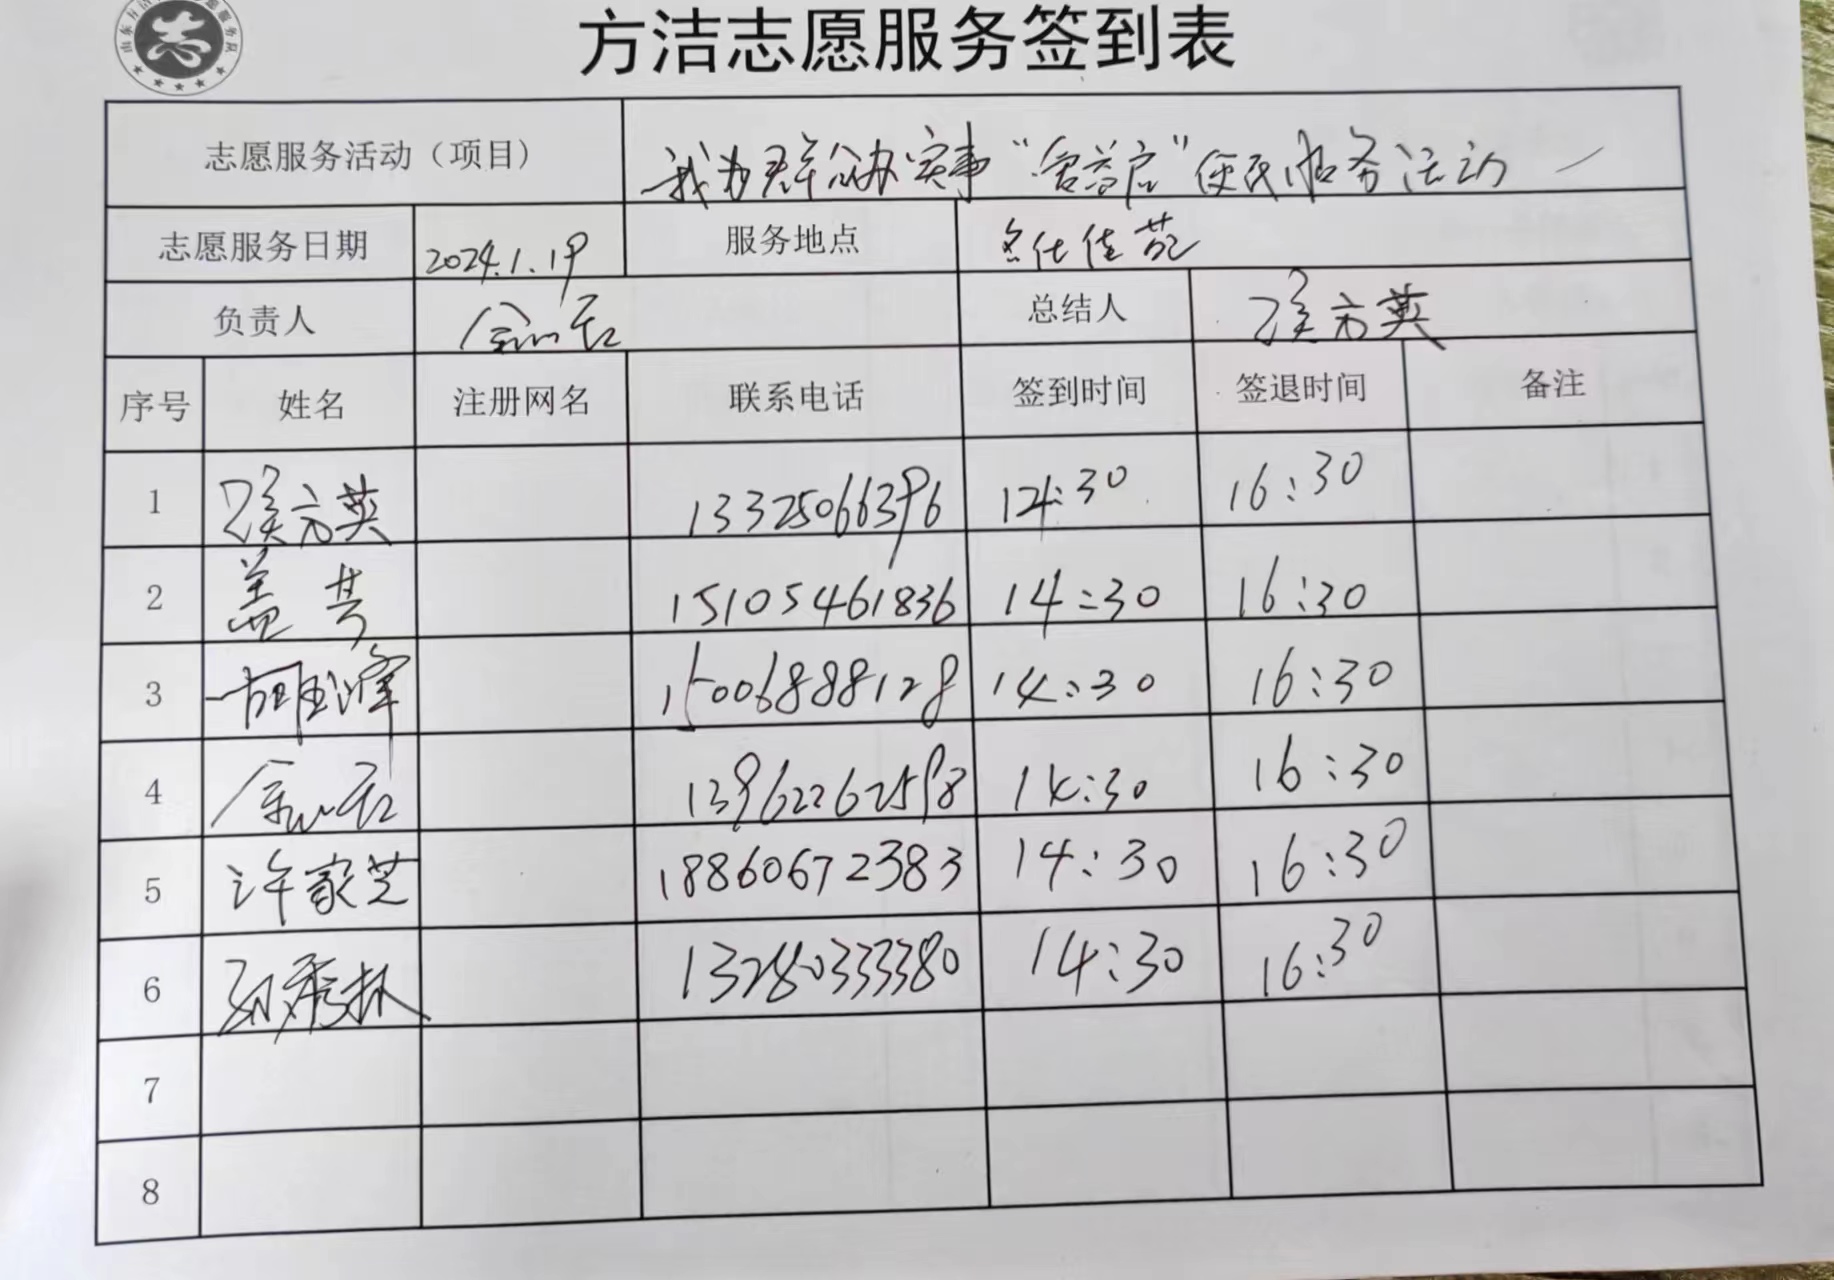 方洁志愿服务签到表
志愿服务活动（项目） 我为群众办实事“舍益店”便民服务活动
志愿服务日期 2024.1.19 服务地点 名仕佳苑
负责人 总结人 方英
序号 姓名 注册网名 联系电话 签到时间 签退时间 备注
1 方英 13325066396 14:30 16:30
2 盖芸 15105461836 14:30 16:30
3 胡玉峰 15006888128 14:30 16:30
4 13962262598 14:30 16:30
5 许家芝 18860672383 14:30 16:30
6 孙秀林 13280333380 14:30 16:30
7
8